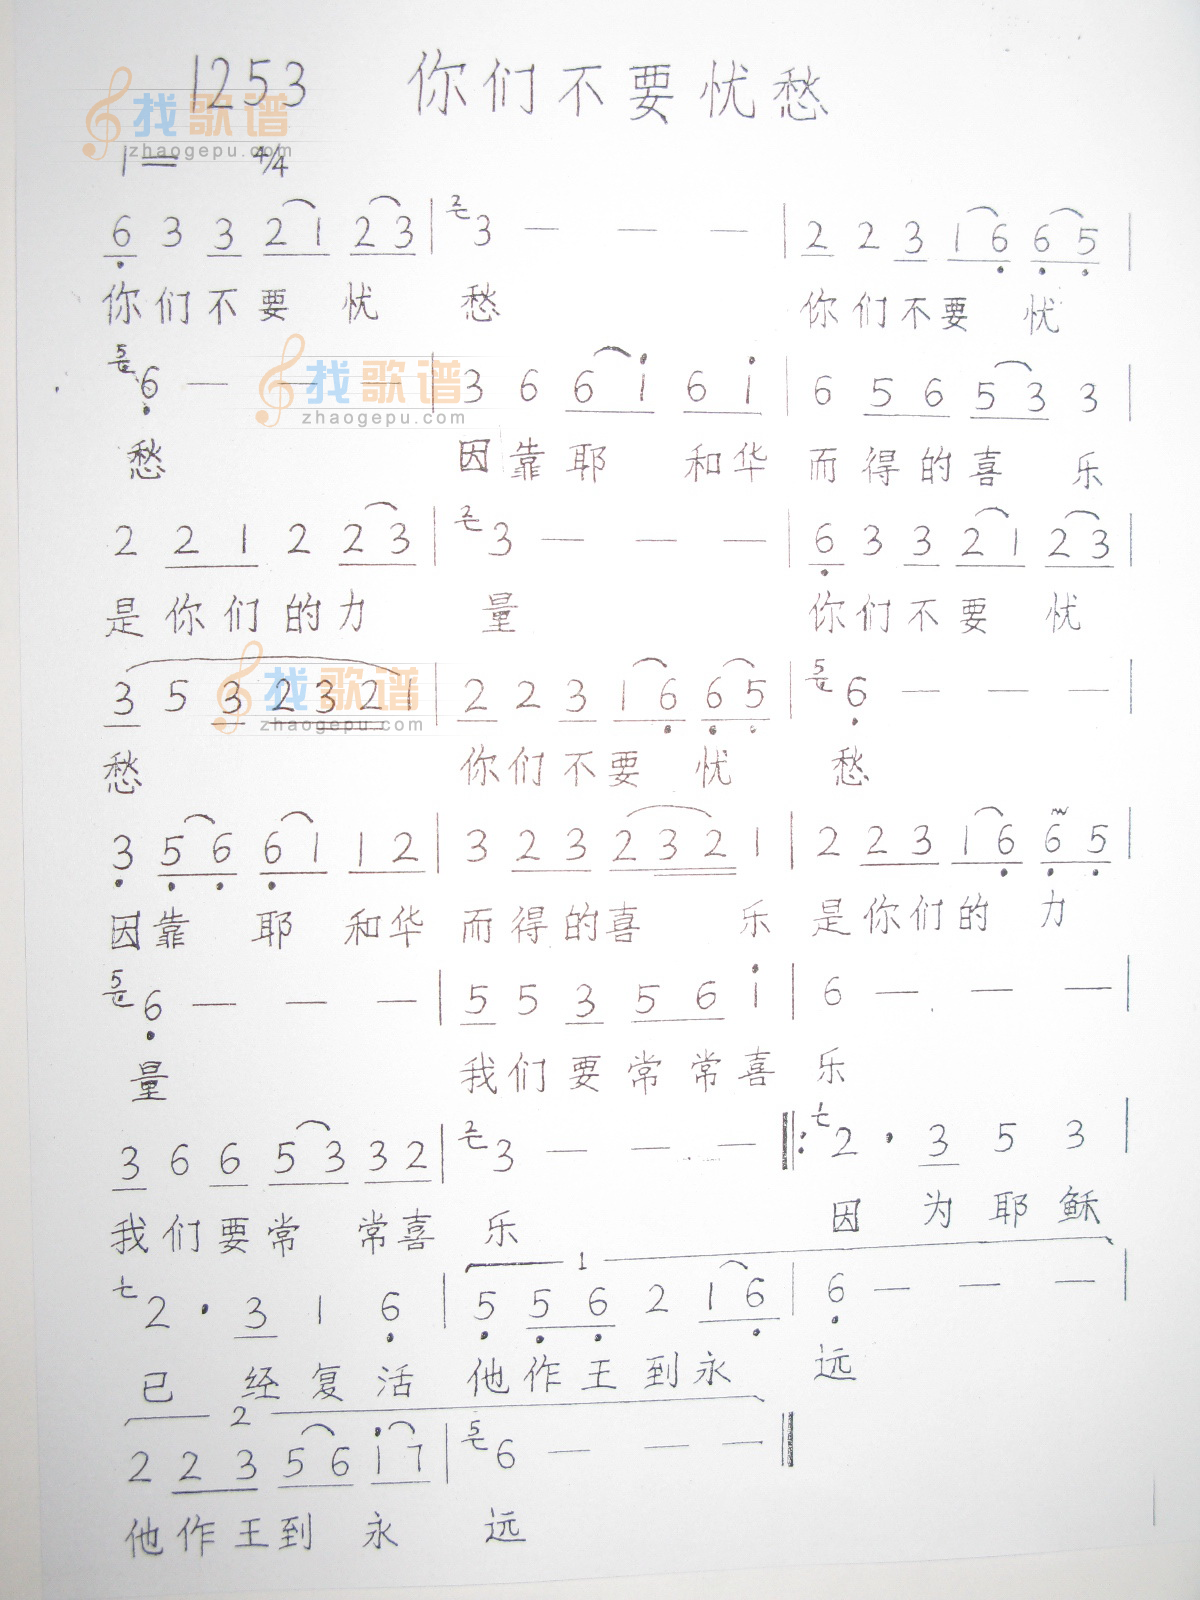 1253 你们不要忧愁
找歌谱
zhaogepu.com
1= 4/4
6 3 3 2 1 2 3 | 2 3 — — — | 2 2 3 1 6 6 5 |
你们不要 忧 愁 你们不要 忧
5 6 — — — | 3 6 6 1 6 1 | 6 5 6 5 3 3 |
找歌谱
zhaogepu.com
愁 因靠耶 和华 而得的喜 乐
2 2 1 2 2 3 | 2 3 — — — | 6 3 3 2 1 2 3 |
是你们的力 量 你们不要 忧
3 5 3 2 3 2 1 | 2 2 3 1 6 6 5 | 5 6 — — — |
找歌谱
zhaogepu.com
愁 你们不要 忧 愁
3 5 6 6 1 1 2 | 3 2 3 2 3 2 1 | 2 2 3 1 6 6 5 |
因靠 耶 和华 而得的喜 乐 是你们的 力
5 6 — — — | 5 5 3 5 6 1 | 6 — — — |
量 我们要常常喜 乐
3 6 6 5 3 3 2 | 2 3 — — — ‖: 1 2 · 3 5 3 |
我们要常 常喜 乐 因 为耶稣
1
2 · 3 1 6 | 5 5 6 2 1 6 | 6 — — — |
已 经复活 他作王到永 远
2
2 2 3 5 6 1 7 | 5 6 — — — ‖
他作王到 永 远